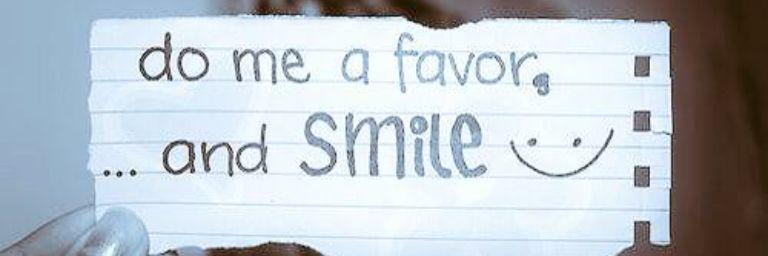 do me a favor,
... and smile